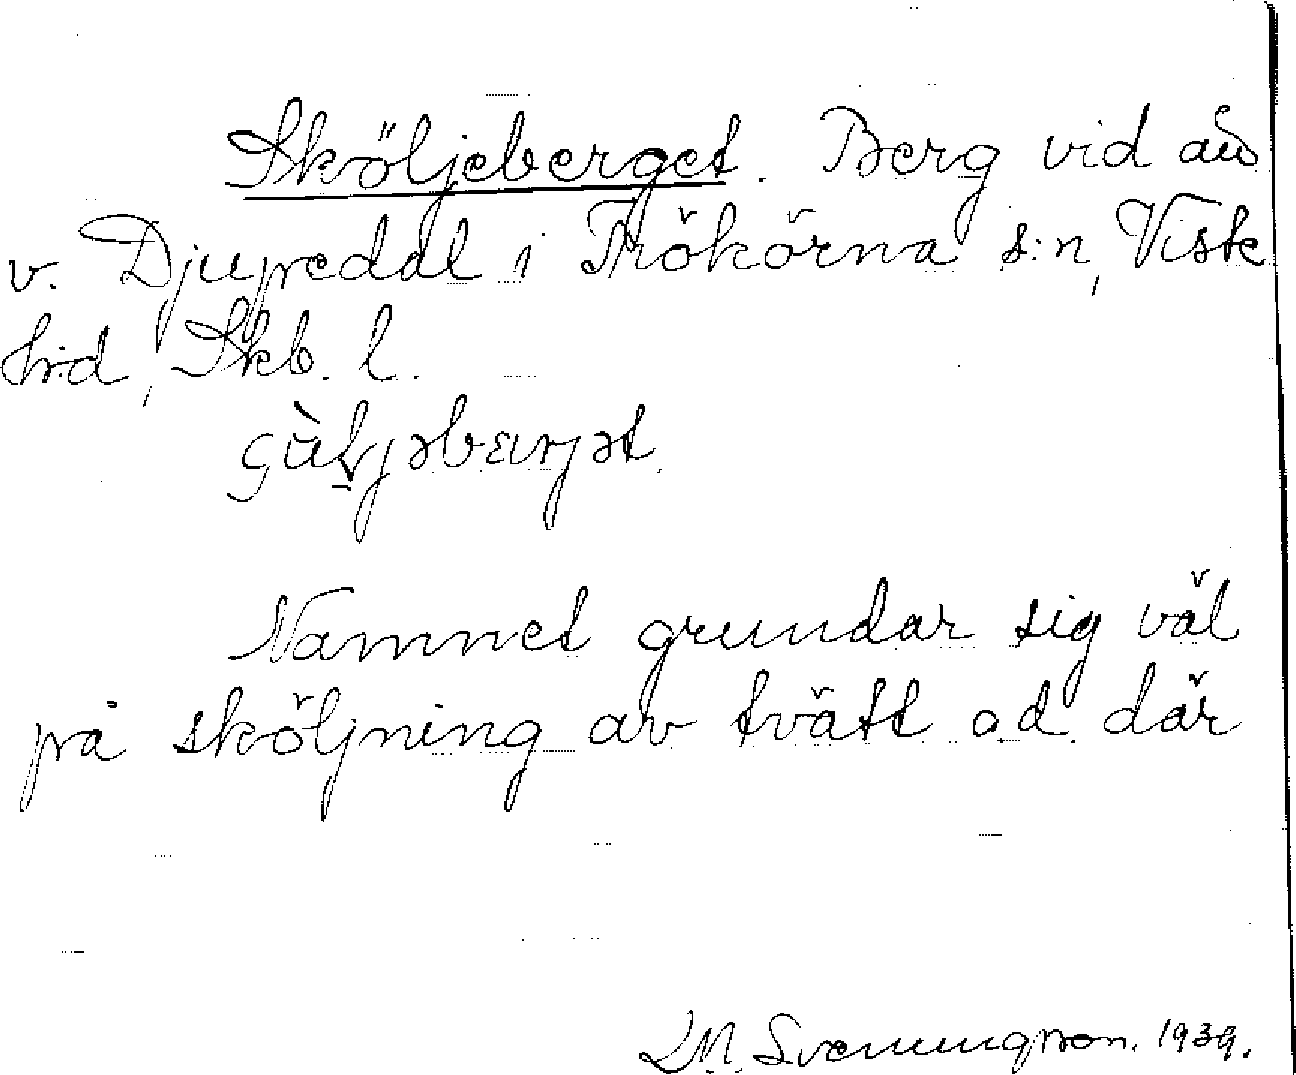 Sköljeberget. Berg vid ån
v. Djupedal i Trökörna s:n, Viste
hd, Skb. l.
Namnet grundar sig väl
på sköljning av tvätt o d. där
D.M. Svenungsson. 1939.